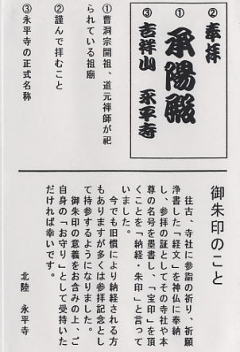 ② 奉拝
① 承陽殿
③ 吉祥山 永平寺
①曹洞宗開祖、道元禅師が祀
られている祖廟
②謹んで拝むこと
③永平寺の正式名称
御朱印のこと
往古、寺社に参詣の祈り、祈願
し、浄書した「経文」を神仏に奉納
し、参拝の証としてその寺社や本
尊の名号を墨書し、「宝印」を頂
くことを「納経・朱印」と言って
いました。
今でも旧慣により納経される方
もありますが多くは参拝記念とし
て持参するようになりました。
御朱印の意義をお含みの上、ご
自身の「お守り」として受持いた
だければ幸いです。
北陸 永平寺